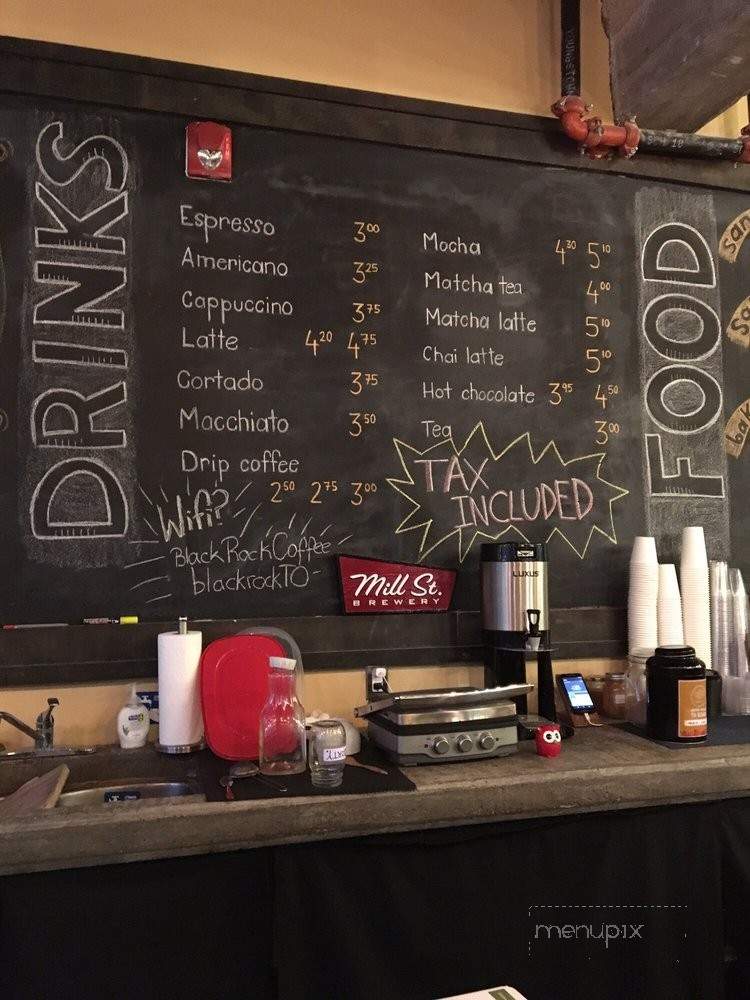 DRINKS
Espresso 3⁰⁰
Americano 3²⁵
Cappuccino 3⁷⁵
Latte 4²⁰ 4⁷⁵
Cortado 3⁷⁵
Macchiato 3⁵⁰
Drip coffee
2⁵⁰ 2⁷⁵ 3⁰⁰
Wifi?
BlackRockCoffee
blackrockTO
Mocha 4³⁰ 5¹⁰
Matcha tea 4⁰⁰
Matcha latte 5¹⁰
Chai latte 5¹⁰
Hot chocolate 3⁹⁵ 4⁵⁰
Tea 3⁰⁰
TAX
INCLUDED
FOOD
Mill St.
BREWERY
LUXUS
menupix